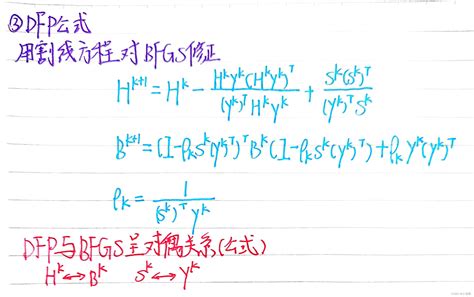 ③DFP公式
用割线方程对BFGS修正
H^{k+1} = H^k - \frac{H^k y^k (H^k y^k)^T}{(y^k)^T H^k y^k} + \frac{s^k (s^k)^T}{(y^k)^T s^k}
B^{k+1} = (I - ρ_k s^k (y^k)^T)^T B^k (I - ρ_k s^k (y^k)^T) + ρ_k y^k (y^k)^T
ρ_k = \frac{1}{(s^k)^T y^k}
DFP与BFGS呈对偶关系(公式)
H^k ↔ B^k s^k ↔ y^k